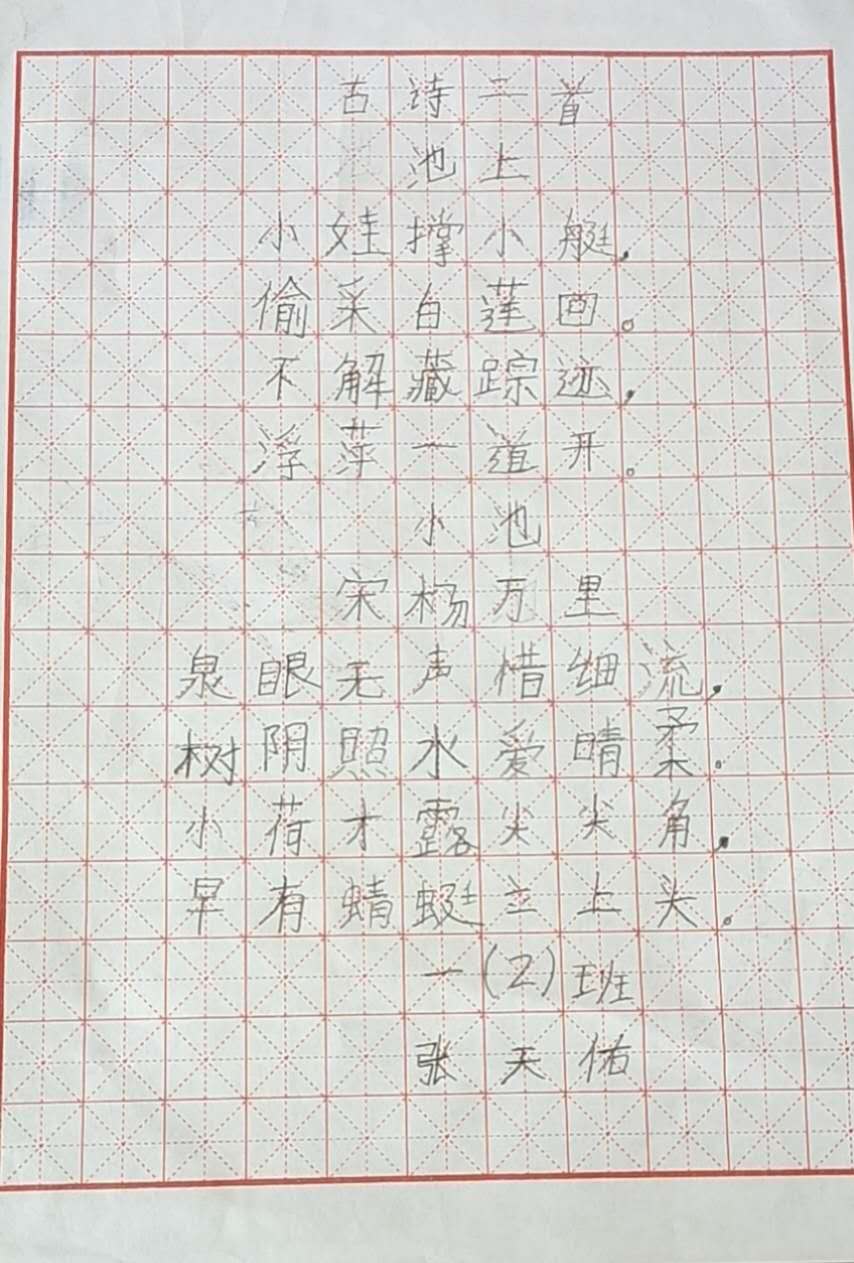 古诗二首
池上
小娃撑小艇，
偷采白莲回。
不解藏踪迹，
浮萍一道开。
小池
宋杨万里
泉眼无声惜细流，
树阴照水爱晴柔。
小荷才露尖尖角，
早有蜻蜓立上头。
一(2)班
张天佑